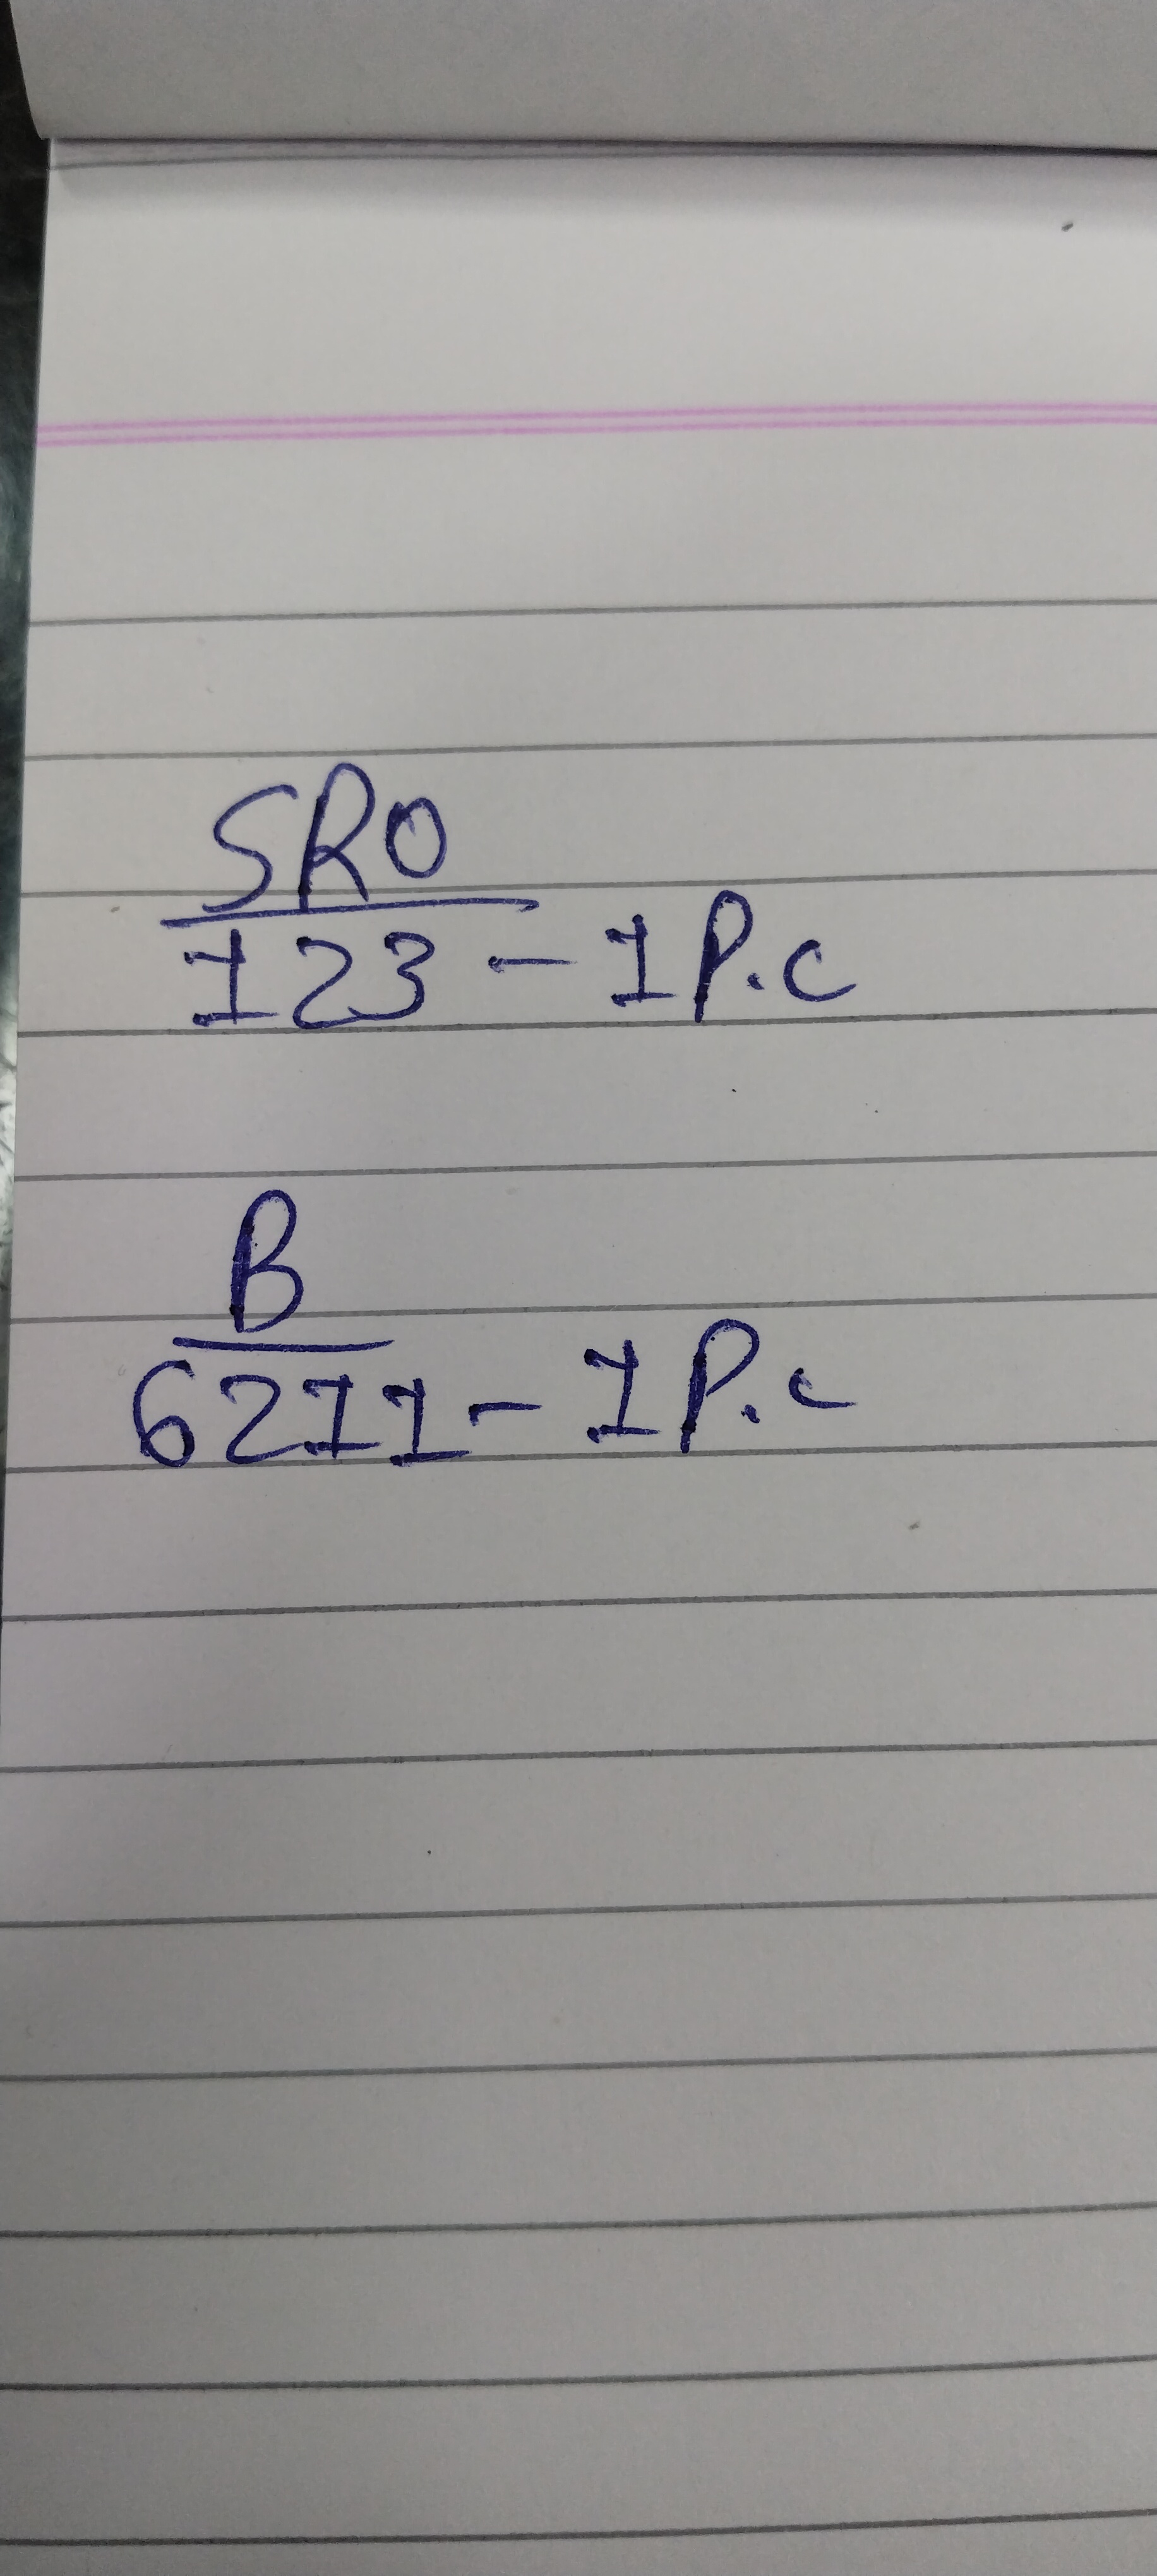 SRO
123 - 1 P.c
B
6211 - 1 P.c